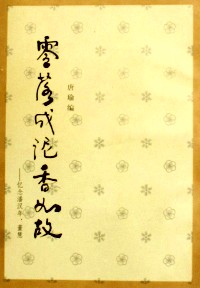 零落成泥香如故
——忆念潘汉年、董慧
唐瑜编